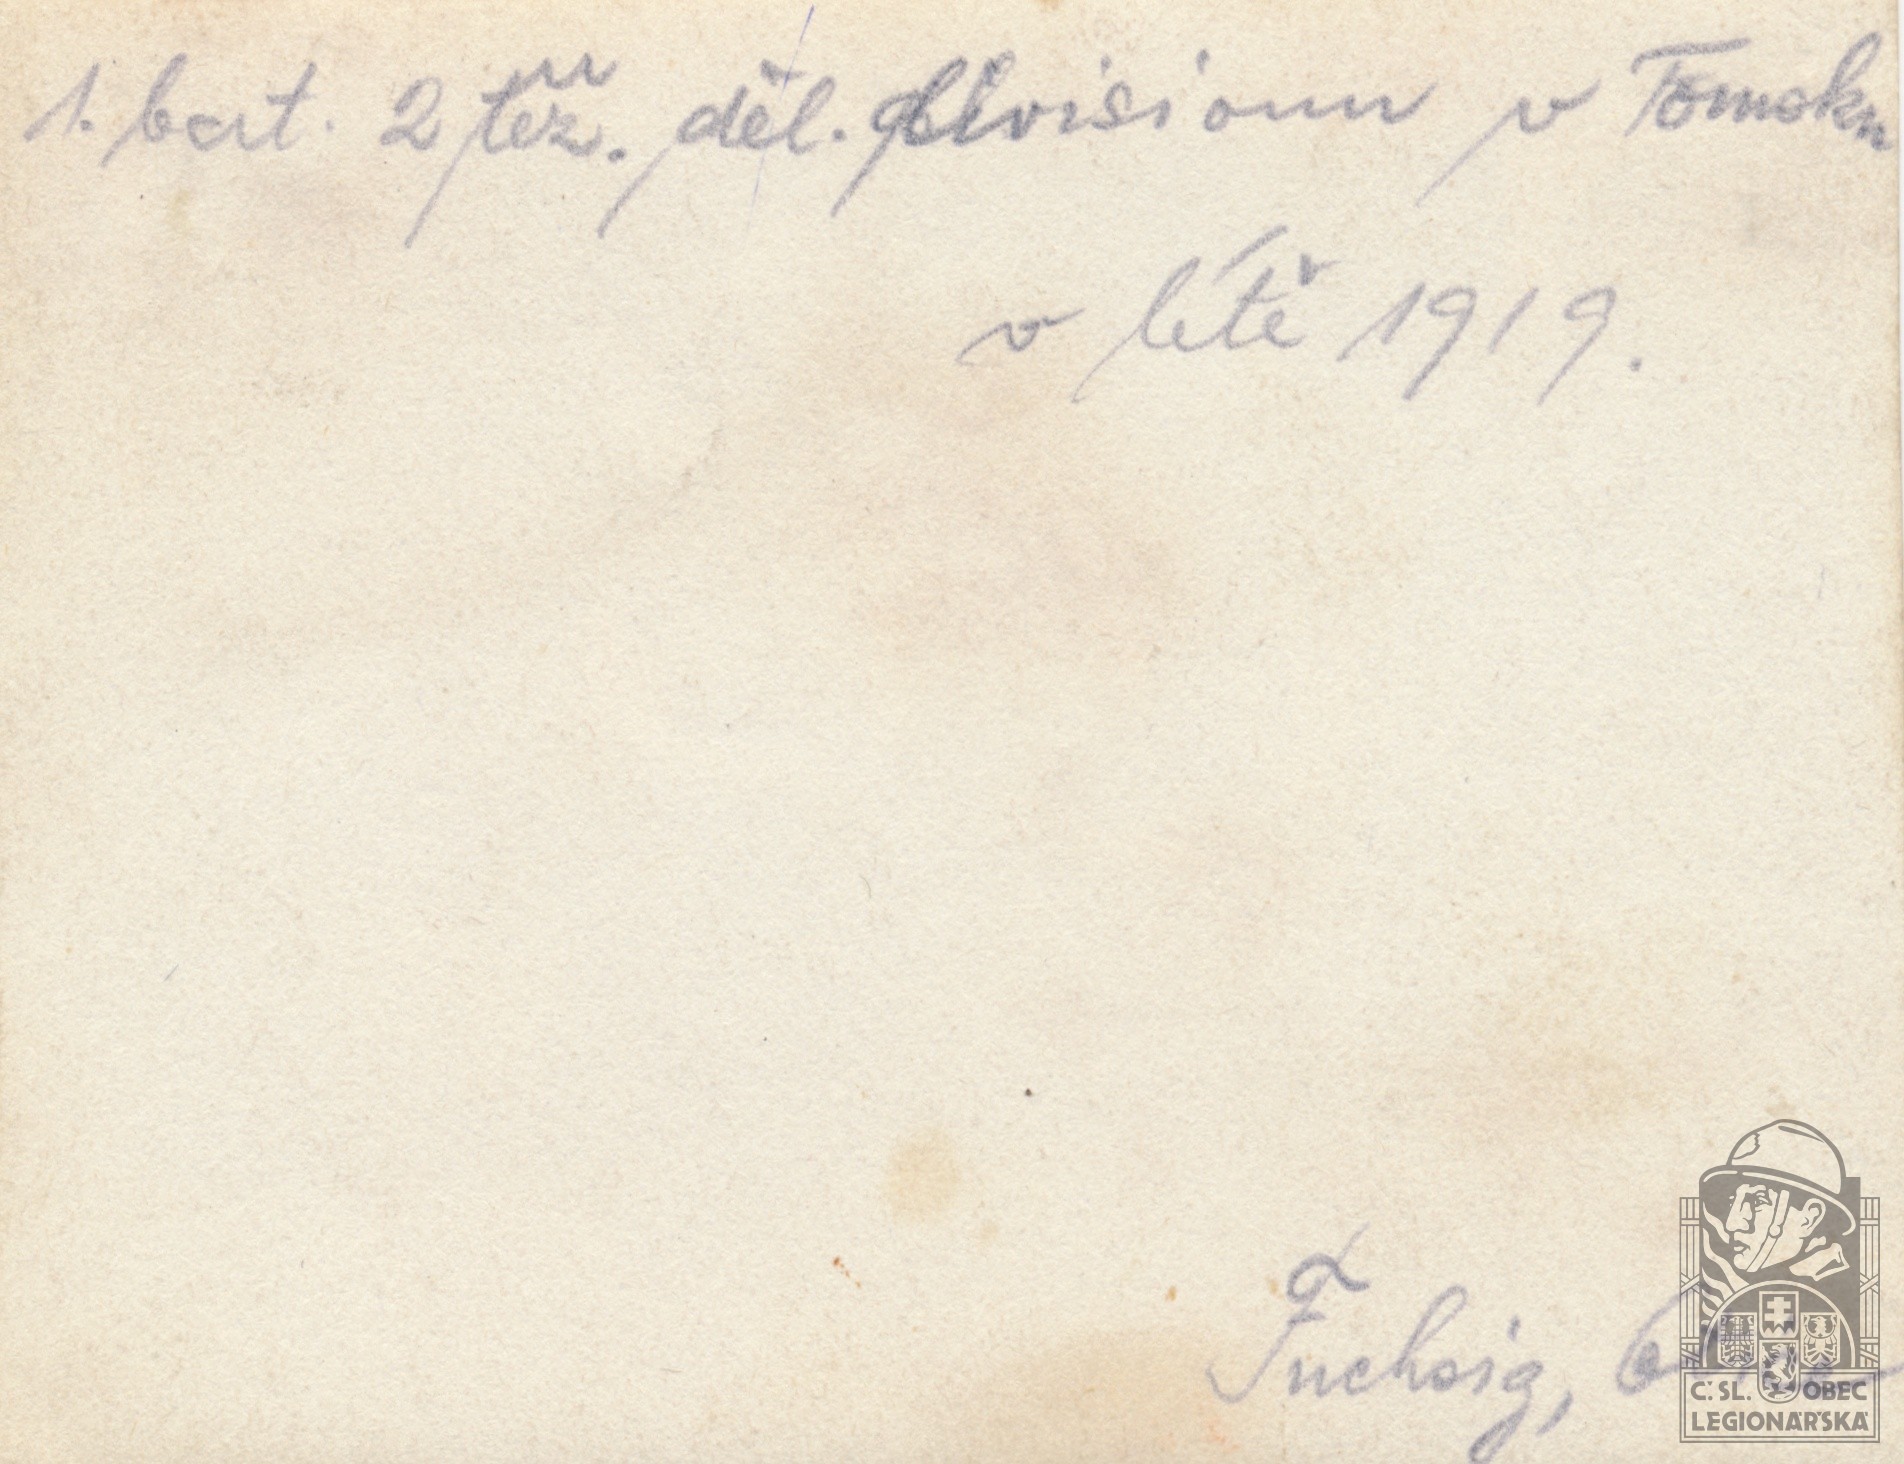 1. bat. 2 těž. děl. divisionu v Tomsku
v létě 1919.
Fuchsig,
Č.SL. OBEC
LEGIONÁŘSKÁ